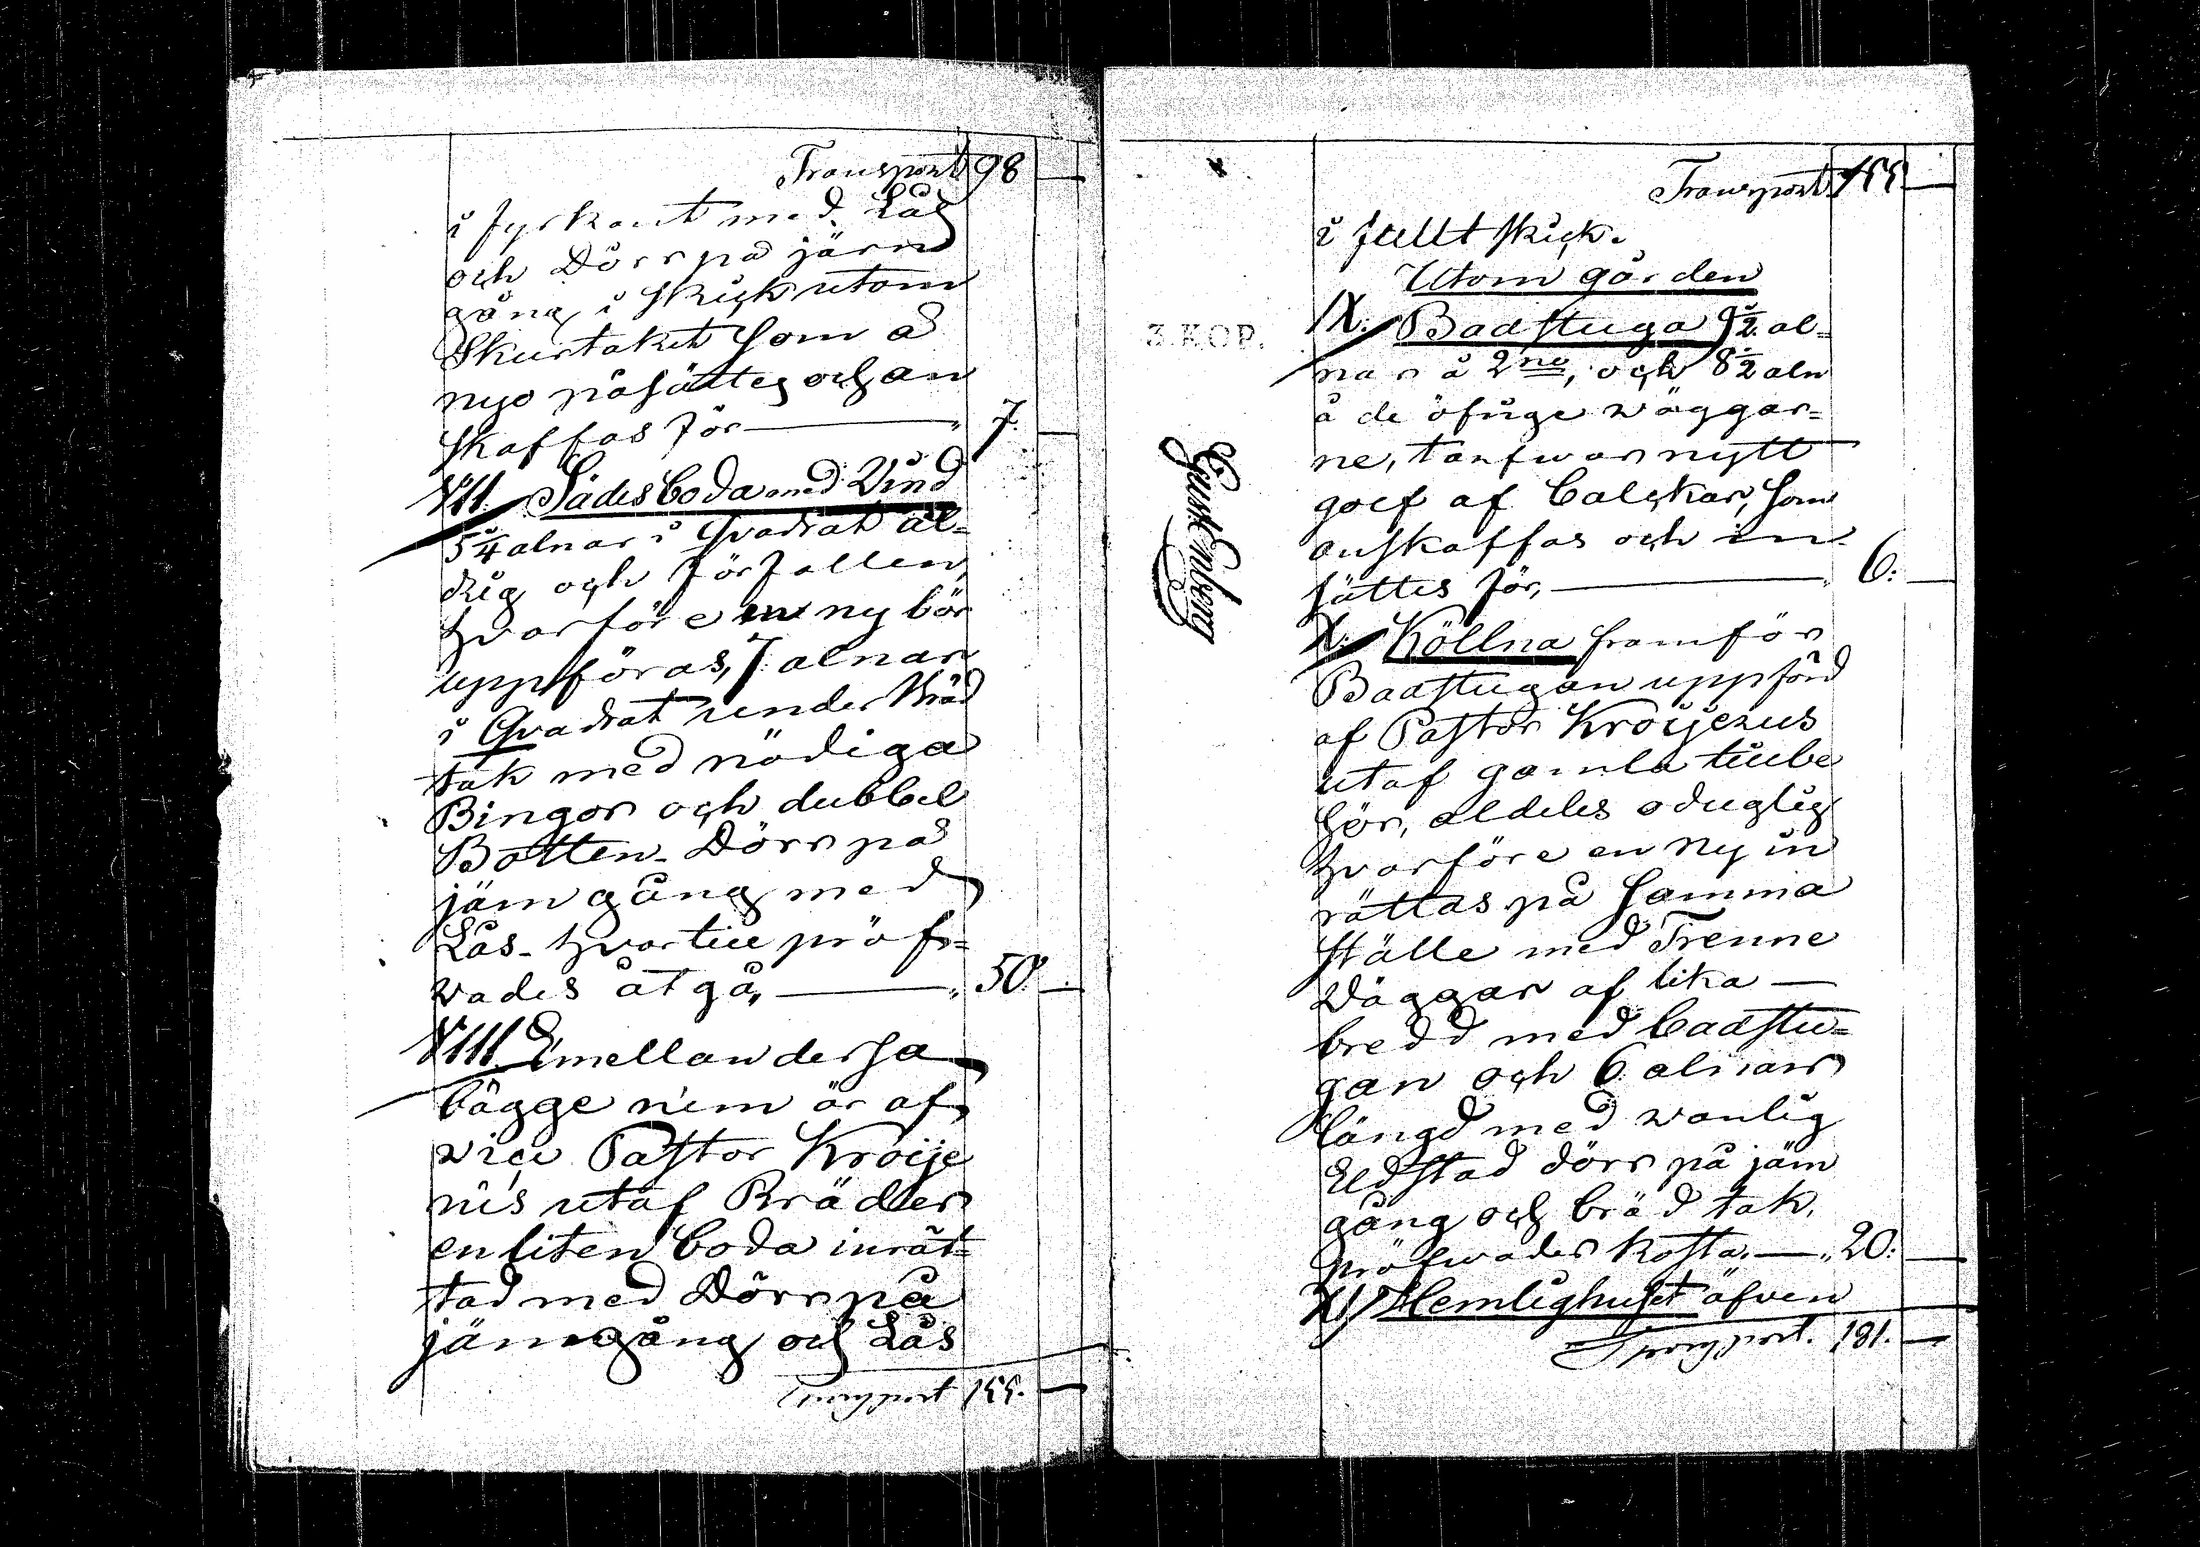 Transport 98 —
i fyrkant med Lås
och Dörr på järn
gång i skick utom
Skurtaket som å
nyo påsättes och an
skaffas för — " 7. —
VII. Sädesboda med Vind
5¼ alnar i Qvadrat ål=
drig och förfallen,
hvarföre en ny bör
uppföras, 7 alnar
i Qvadrat under Bräd
tak med nödiga
Bingor och dubbel
Botten. Dörr på
järn gång med
Lås. hvartill pröf=
vades åtgå, — " 50. —
VIII. Emellan dessa
bägge rum är af
vice Pastor Kroije
rus utaf Bräder
en liten boda inrät=
tad med Dörr på
järngång och Lås
Transport 155. —
Transport 155 —
i fullt skick.
Utom gården
IX. Badstuga 9½ al=
nar å 2ne, och 8½ aln
å de öfrige väggar=
ne, tarfwar nytt
golf af balckar, som
anskaffas och in=
sättes för, — " 6. —
X. Köllna framför
Badstugan uppförd
af Pastor Kroijerus
utaf gamla tillbe
hör, aldeles oduglig
hvarföre en ny in
rättas på samma
ställe med Trenne
Väggar af lika —
bredd med badstu=
gan och 6 alnars
längd med vanlig
Eldstad dörr på järn
gång och bräd tak,
pröfwades kosta. — " 20. —
XI. Hemlighuset äfven
Transport. 181. —
3. KOP.
Gust Enberg